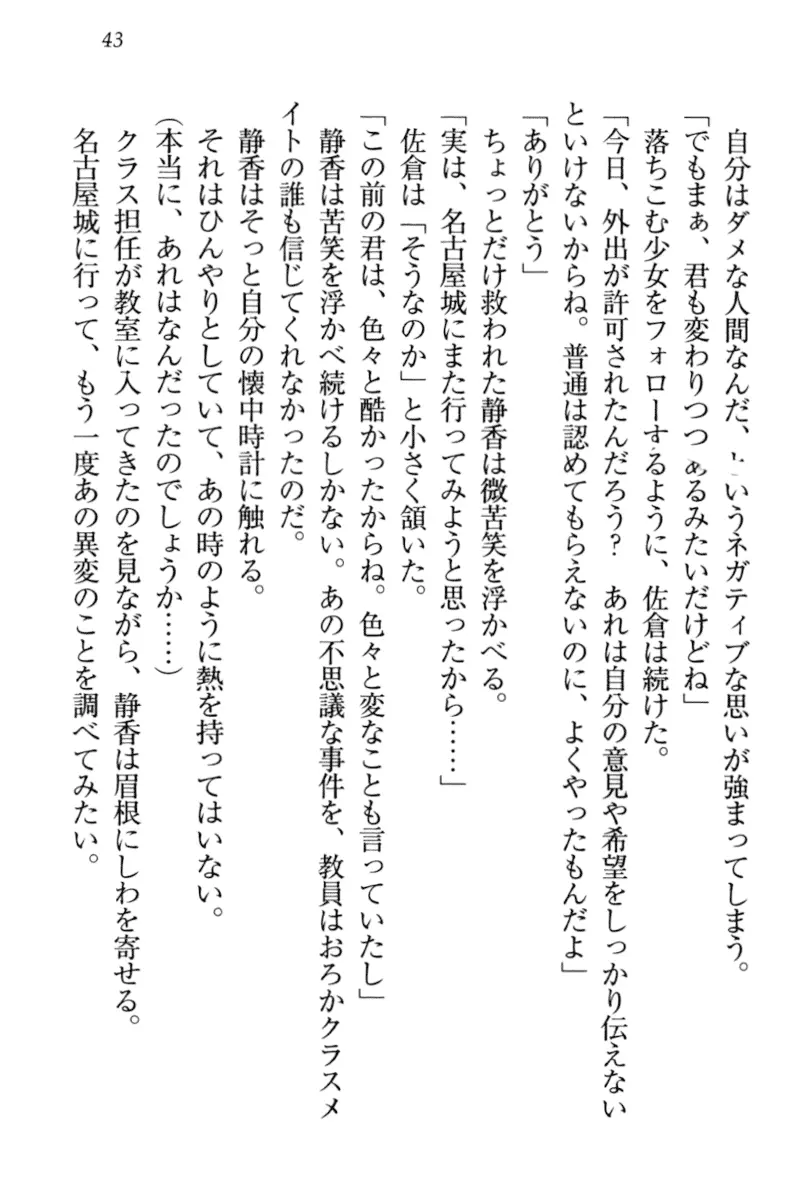 43
自分はダメな人間なんだ、というネガティブな思いが強まってしまう。
「でもまぁ、君も変わりつつあるみたいだけどね」
落ちこむ少女をフォローするように、佐倉は続けた。
「今日、外出が許可されたんだろう？　あれは自分の意見や希望をしっかり伝えない
といけないからね。普通は認めてもらえないのに、よくやったもんだよ」
「ありがとう」
ちょっとだけ救われた静香は微苦笑を浮かべる。
「実は、名古屋城にまた行ってみようと思ったから……」
佐倉は「そうなのか」と小さく頷いた。
「この前の君は、色々と酷かったからね。色々と変なことも言っていたし」
静香は苦笑を浮かべ続けるしかない。あの不思議な事件を、教員はおろかクラスメ
イトの誰も信じてくれなかったのだ。
静香はそっと自分の懐中時計に触れる。
それはひんやりとしていて、あの時のように熱を持ってはいない。
（本当に、あれはなんだったのでしょうか……）
クラス担任が教室に入ってきたのを見ながら、静香は眉根にしわを寄せる。
名古屋城に行って、もう一度あの異変のことを調べてみたい。